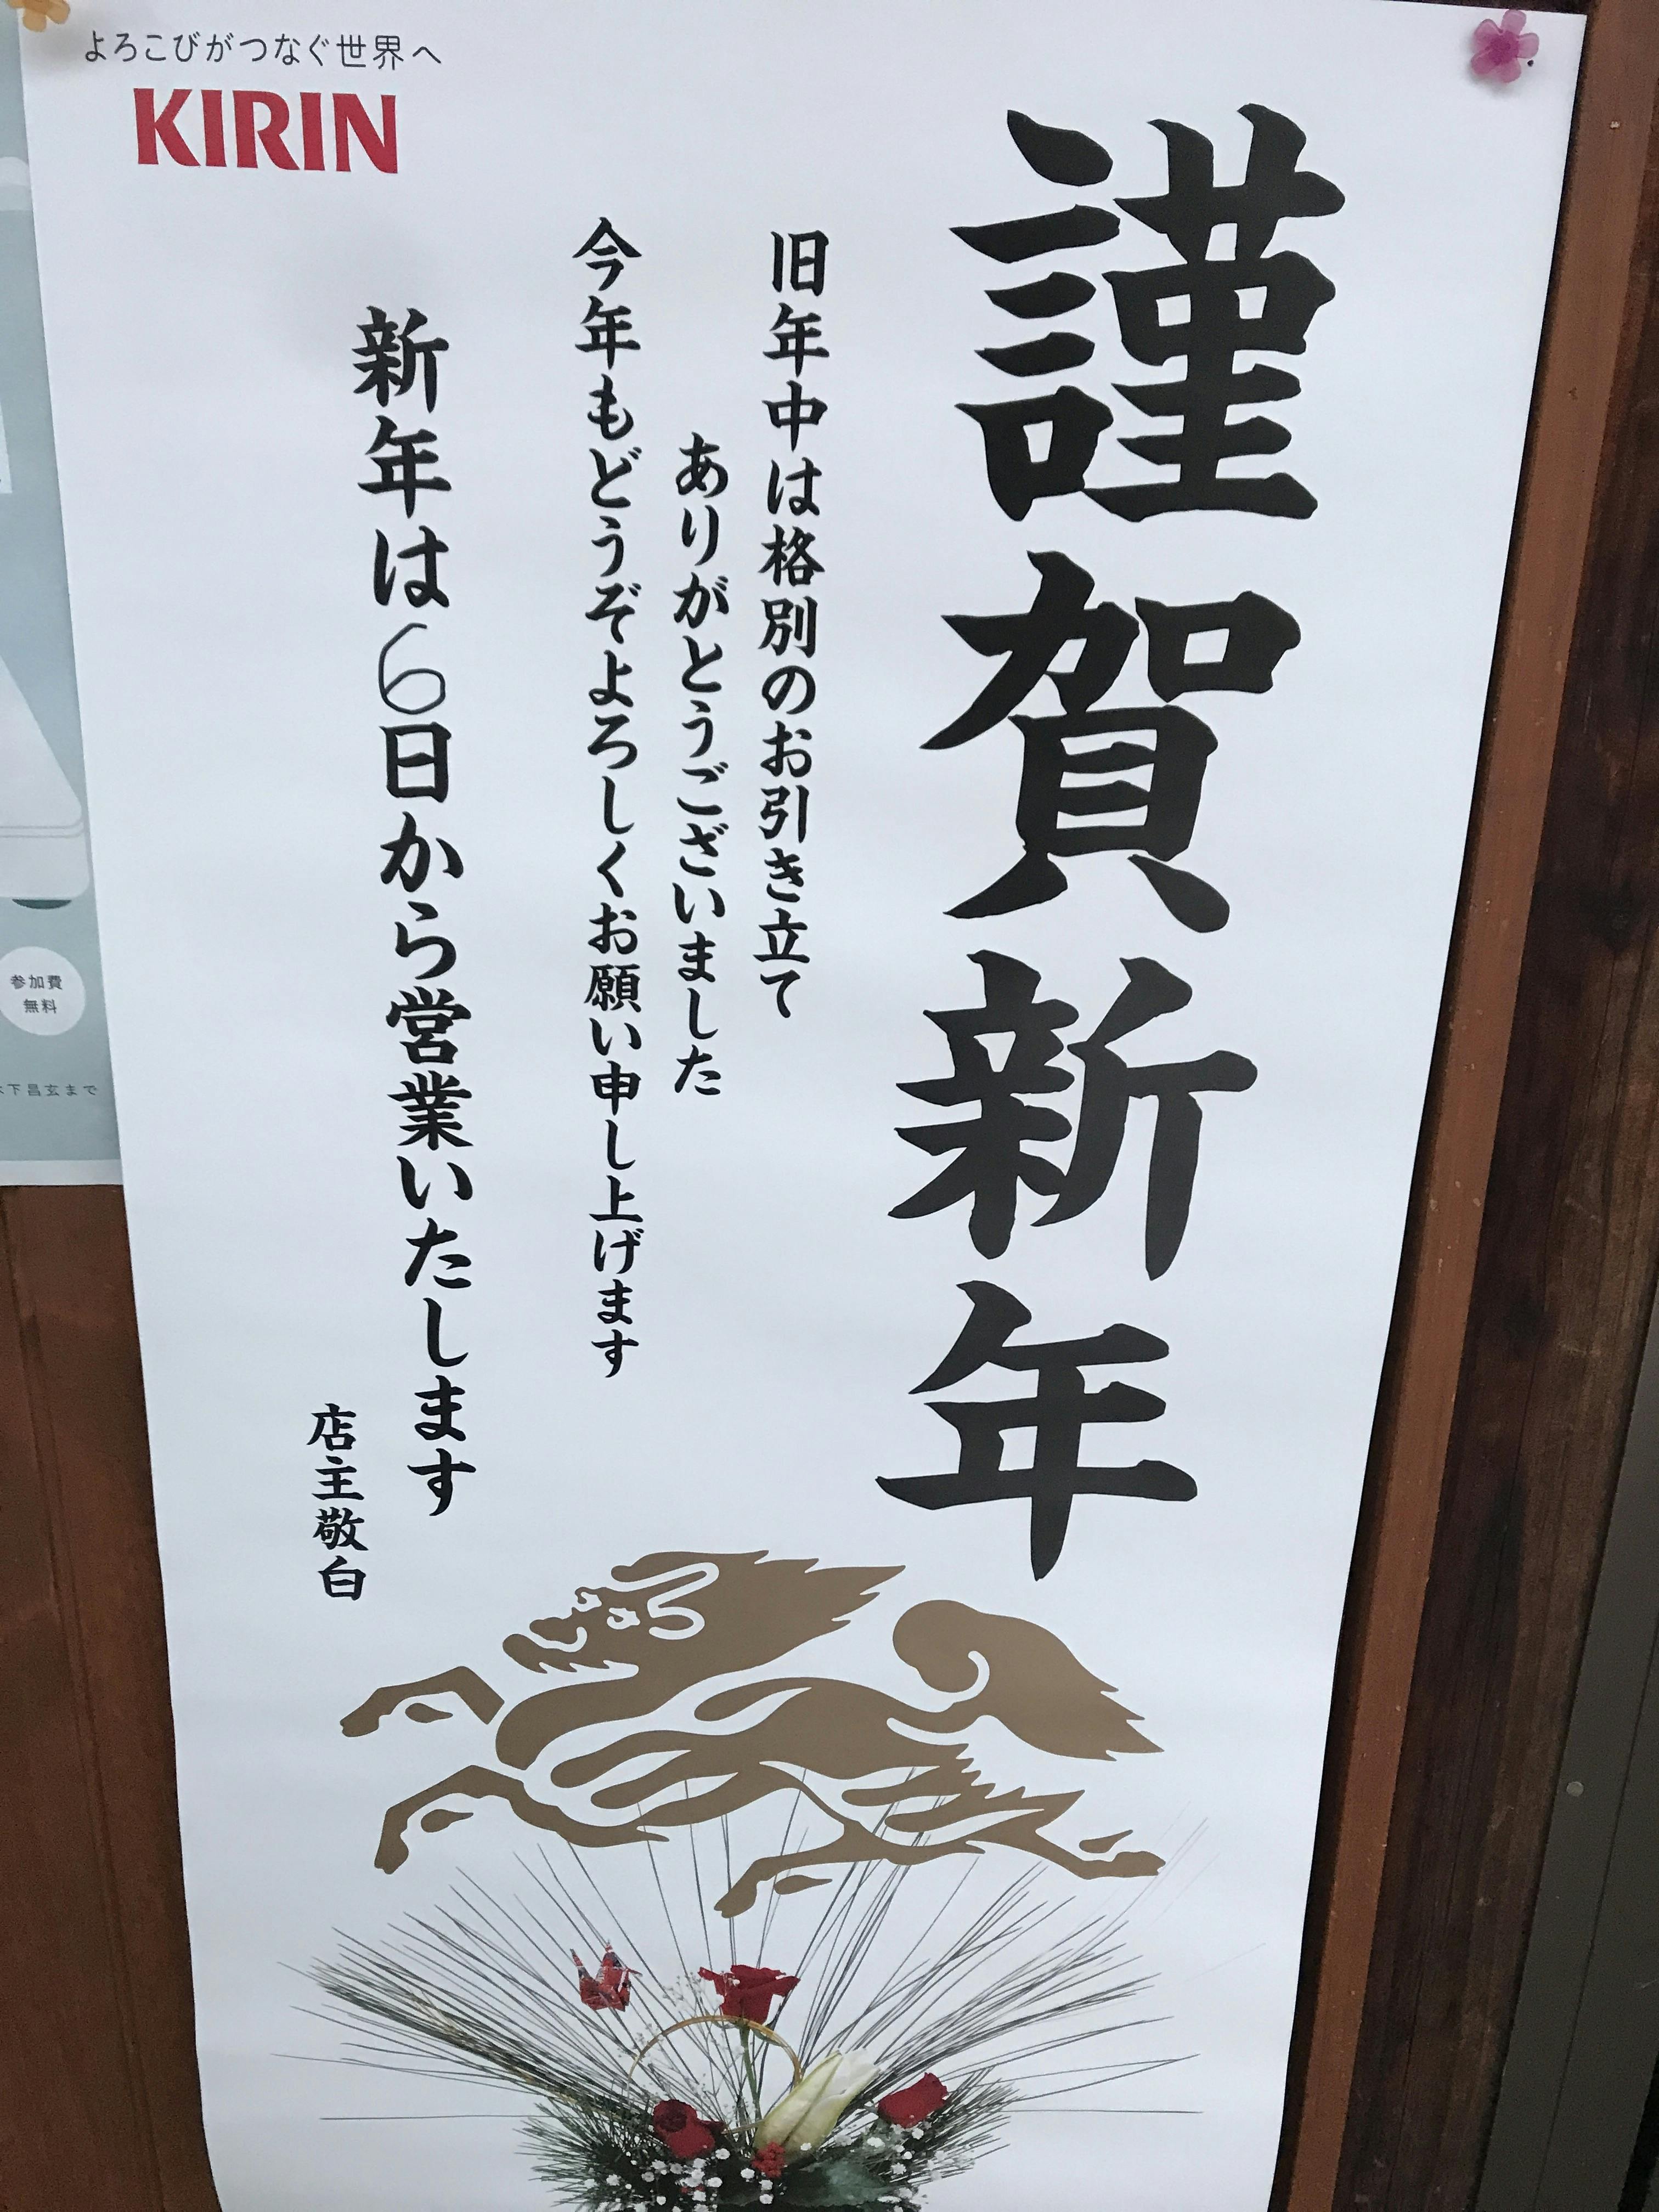 よろこびがつなぐ世界へ
KIRIN
謹賀新年
旧年中は格別のお引き立て
ありがとうございました
今年もどうぞよろしくお願い申し上げます
新年は6日から営業いたします
店主敬白
参加費
無料
下昌玄まで